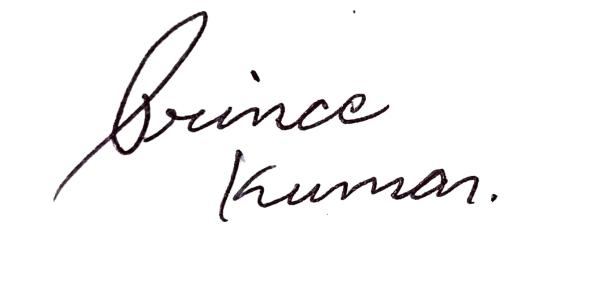 Prince
Kumar.